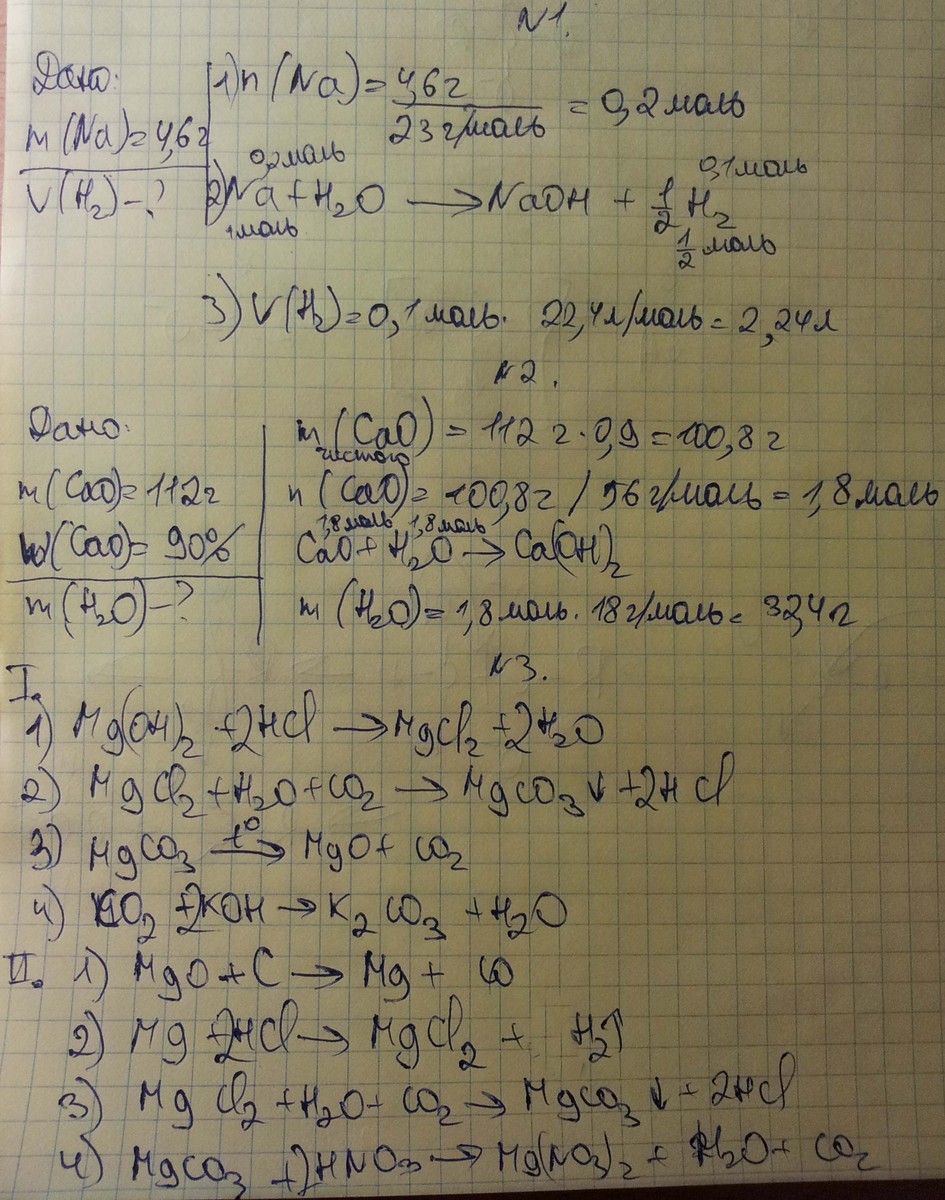 N1.
Дано:
m(Na)=4,6г
V(H₂)-?
1) n(Na)= 4,6г / 23г/моль = 0,2моль
0,2моль 0,1моль
2) Na+H₂O → NaOH + 1/2 H₂
1моль 1/2 моль
3) V(H₂)=0,1моль· 22,4л/моль= 2,24л
N2.
Дано:
m(CaO)=112г
ω(CaO)= 90%
m(H₂O)-?
m(CaO) = 112г·0,9=100,8г
чистого
n(CaO)= 100,8г / 56г/моль = 1,8моль
1,8моль 1,8моль
CaO+H₂O→Ca(OH)₂
m(H₂O)=1,8моль·18г/моль= 32,4г
N3.
I.
1) Mg(OH)₂ +2HCl →MgCl₂ +2H₂O
2) MgCl₂ +H₂O+CO₂ → MgCO₃↓ +2HCl
3) MgCO₃ t° → MgO+ CO₂
4) CO₂ +2KOH → K₂CO₃ +H₂O
II. 1) MgO+C → Mg + CO
2) Mg +2HCl → MgCl₂ + H₂↑
3) MgCl₂ +H₂O+ CO₂ → MgCO₃↓ +2HCl
4) MgCO₃ +2HNO₃→ Mg(NO₃)₂ + H₂O+ CO₂